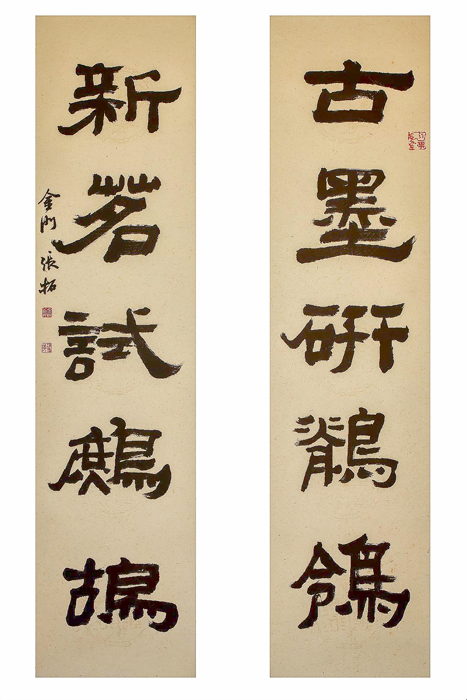 古墨研鶺鴒
新茗試鷓鴣
金門 張拓